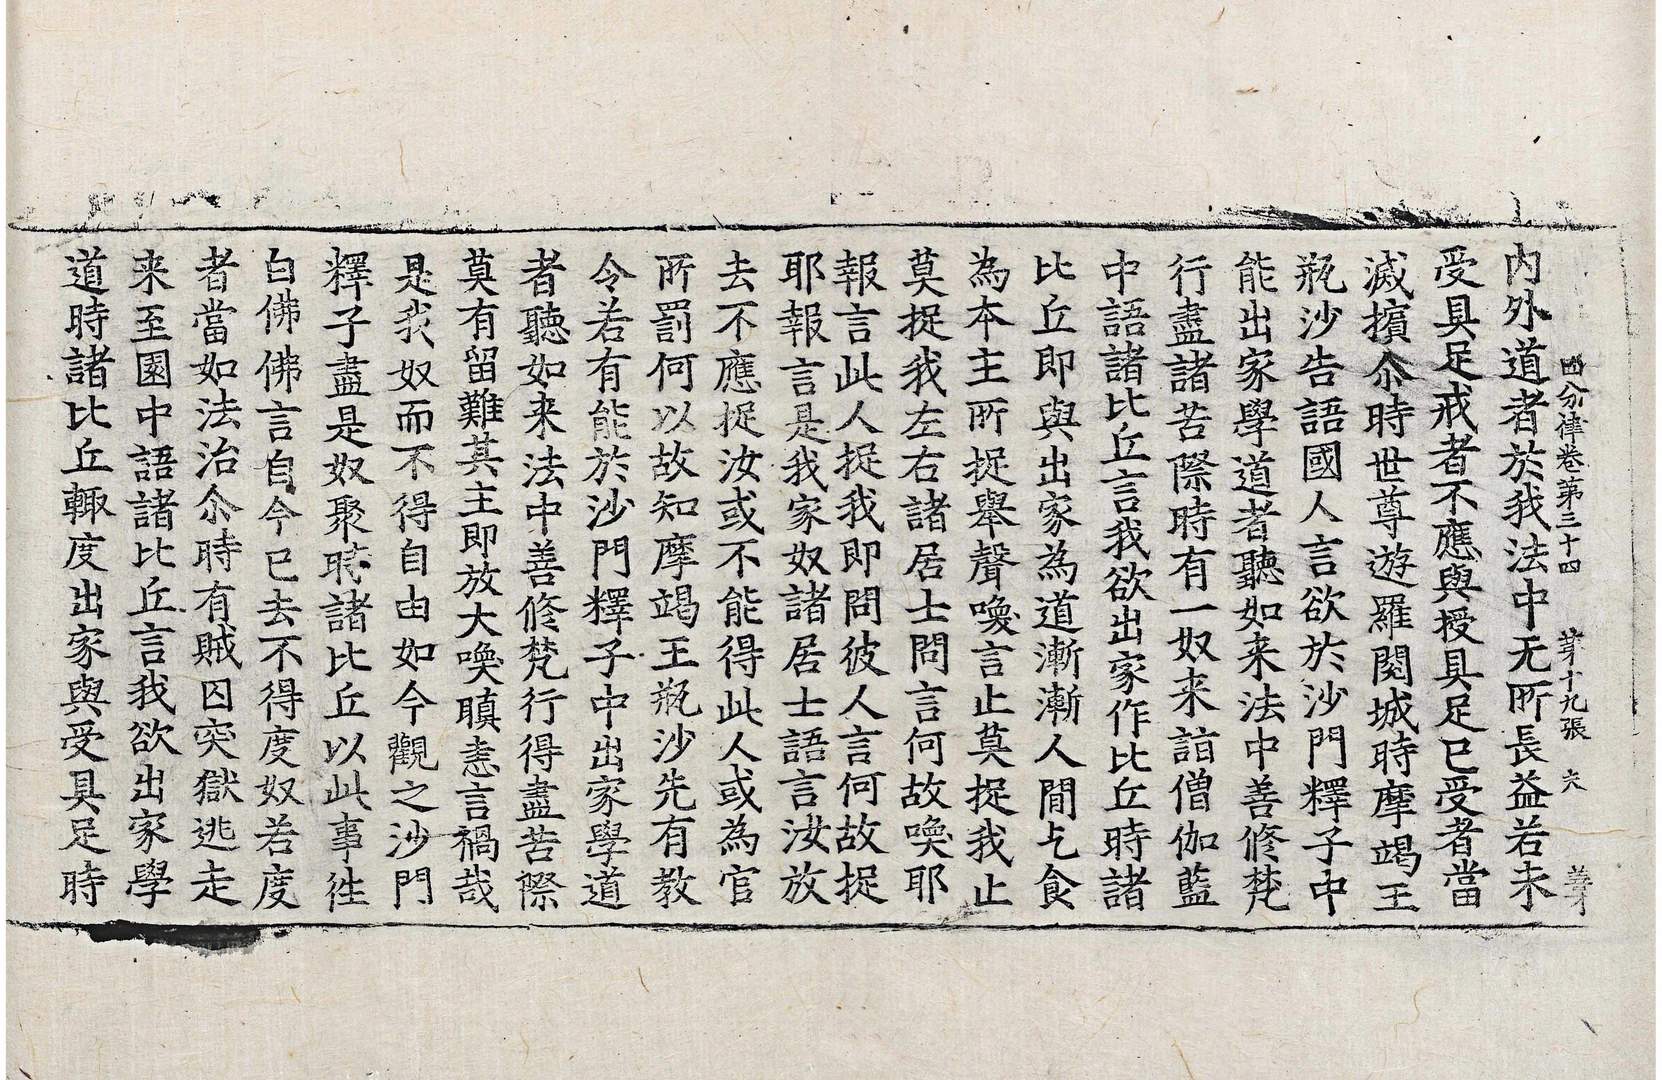 四分律卷第三十四 第十九張
内外道者於我法中无所長益若未
受具足戒者不應與授具足已受者當
滅擯尒時世尊遊羅閱城時摩竭王
瓶沙告語國人言欲於沙門釋子中
能出家學道者聽如来法中善修梵
行盡諸苦際時有一奴来詣僧伽藍
中語諸比丘言我欲出家作比丘時諸
比丘即與出家為道漸漸人間乞食
為本主所捉舉聲喚言止莫捉我止
莫捉我左右諸居士問言何故喚耶
報言此人捉我即問彼人言何故捉
耶報言是我家奴諸居士語言汝放
去不應捉汝或不能得此人或為官
所罰何以故知摩竭王瓶沙先有教
令若有能於沙門釋子中出家學道
者聽如来法中善修梵行得盡苦際
莫有留難其主即放大喚瞋恚言禍哉
是我奴而不得自由如今觀之沙門
釋子盡是奴聚時諸比丘以此事徃
白佛佛言自今已去不得度奴若度
者當如法治尒時有賊囚突獄逃走
来至園中語諸比丘言我欲出家學
道時諸比丘輙度出家與受具足時